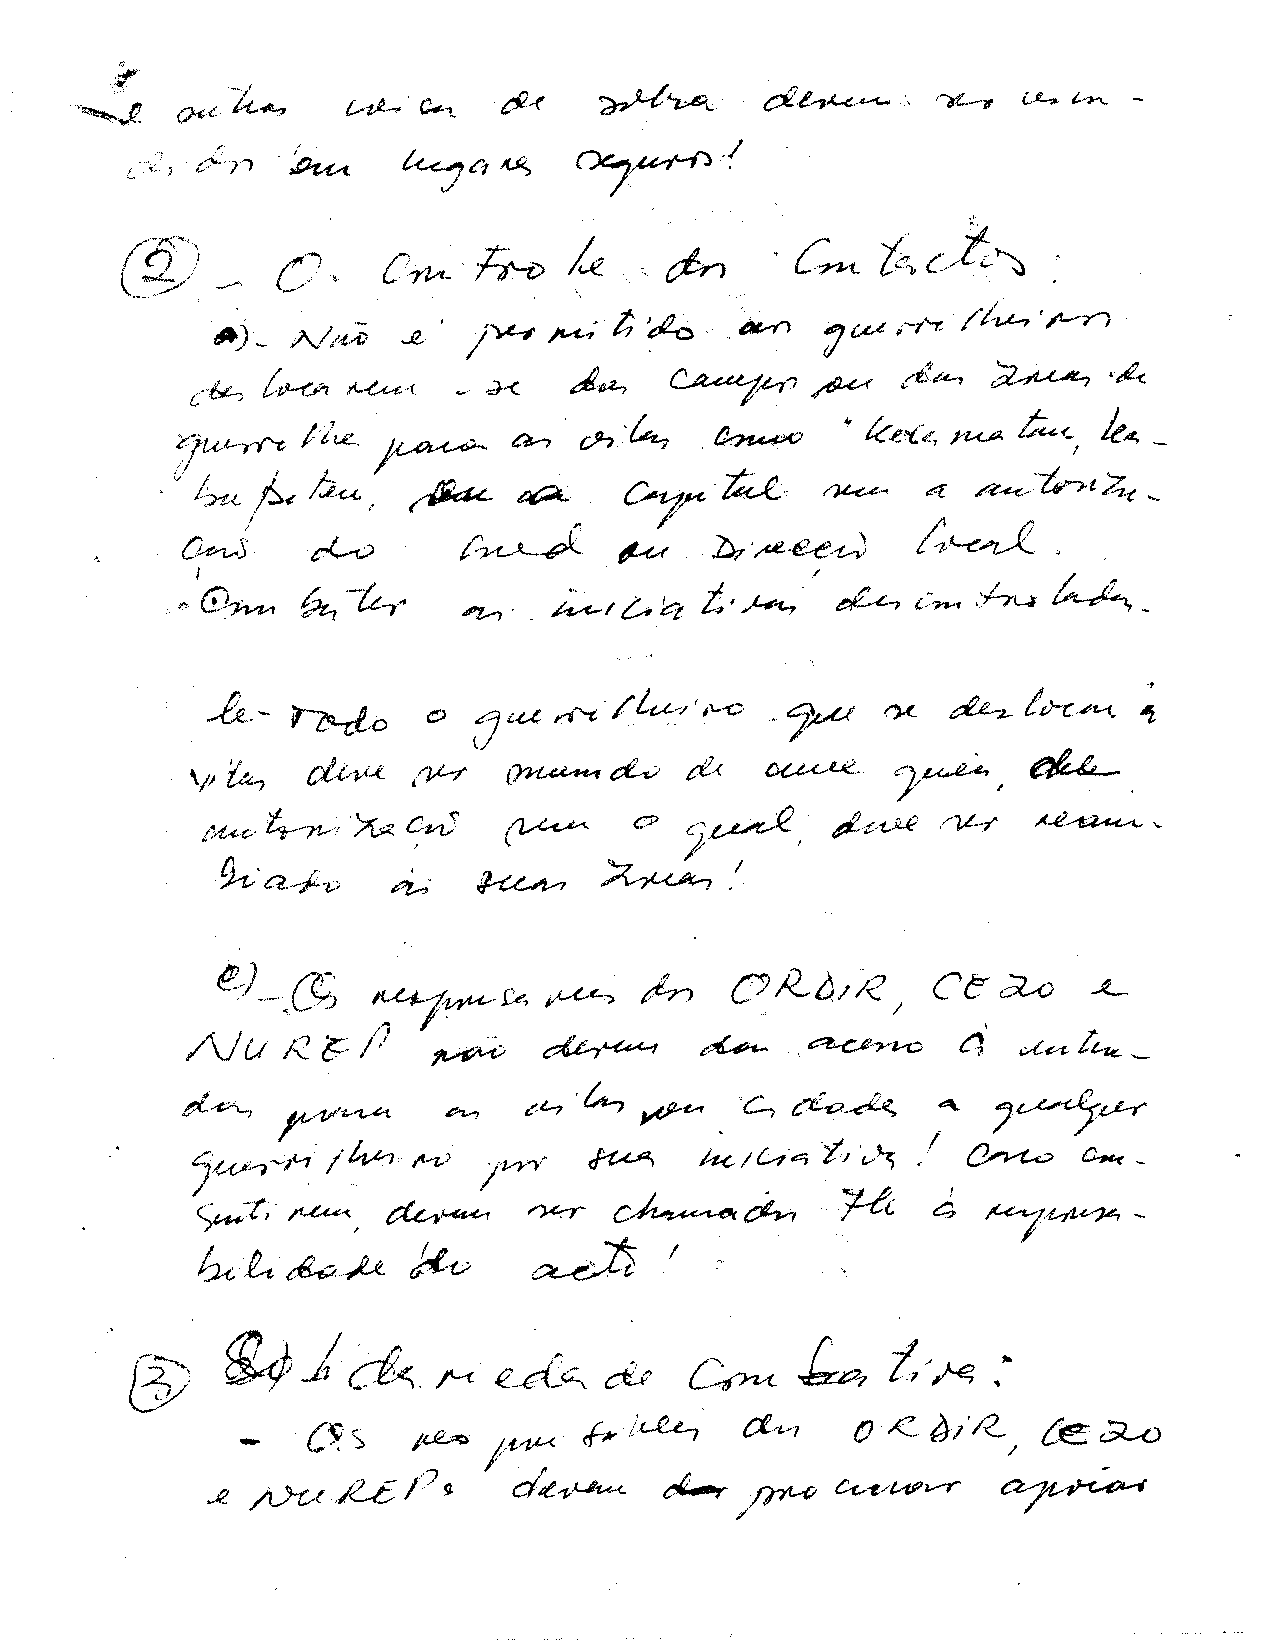 e outras coisas de sobra devem ser escon-
didos em lugares seguros!
② - O. Controle dos Contactos:
a)- Não é permitido aos guerrilheiros
deslocarem-se dos campos ou das áreas de
guerrilha para as vilas como
Capital sem a autoriza-
ção do Cmed ou Direcção local.
Combater as iniciativas descontroladas.
b- Todo o guerrilheiro que se deslocar à
vilas deve ser munido de uma guia, de
autorização sem o qual, deve ser ream-
biado às suas áreas!
c)- Os responsaveis dos ORDIR, CEZO e
NUREP não devem dar aceno à
das para as vilas ou cidades a qualquer
guerrilheiro por sua iniciativa! Caso con-
sentirem, devem ser chamados à responsa-
bilidade do acto!
③ Solidariedade Combativa:
- Os responsables dos ORDIR, CEZO
e NUREPs devem procurar apoiar